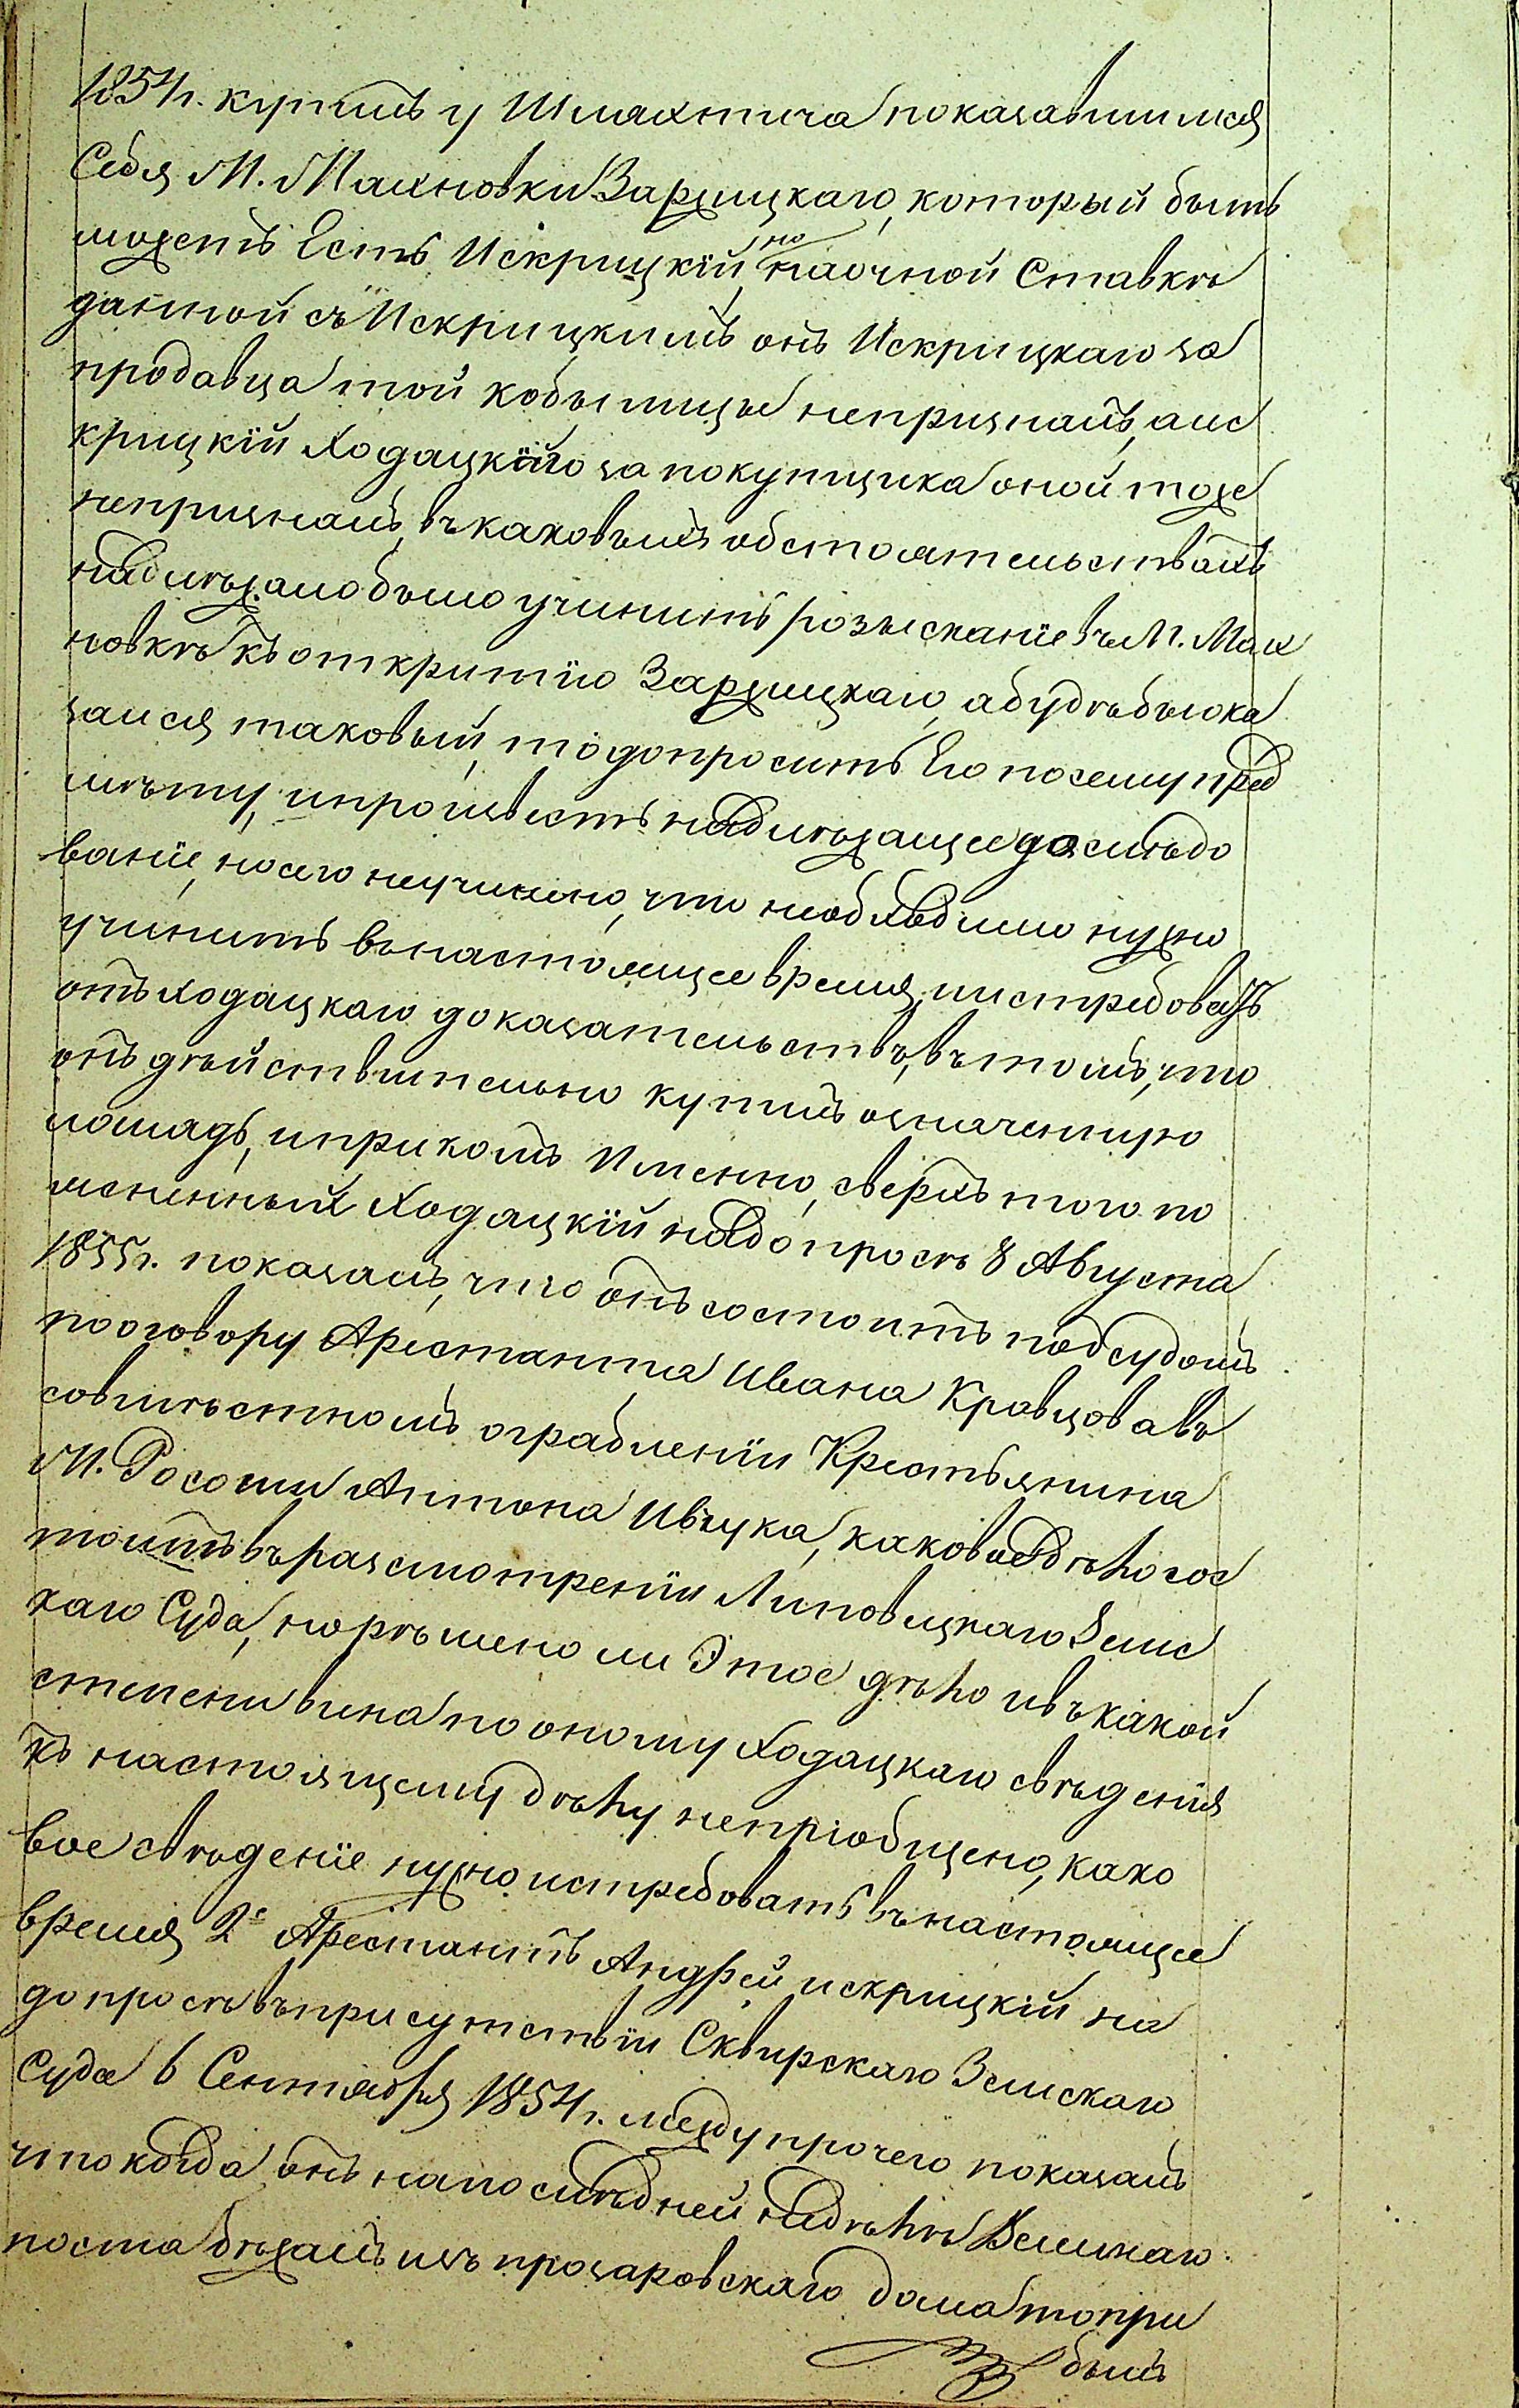 1854г. купилъ у Шляхтича показавшимся
Себя М. Махновки Заржицкаго, который быть
можетъ Есть Искрицкій, но на очной Ставкѣ
данной съ Искрицкимъ онъ Искрицкаго за
продавца той кобылицы непризналъ, а Ис
крицкій Ходацкаго за покупщика оной тоже
непризналъ, въ каковыхъ обстоятельствахъ
надлѣжало было учинить розысканіе въ М. Мах
новкѣ къ откритію Заржицкаго, а будѣ бы ока
зался таковый, то допросить Его по сему пред
мѣту, и произвесть надлѣжащее дослѣдо
ваніе, но сего неучинено, что необходимо нужно
учинить въ настоящее время, и истребовать
отъ Ходацкаго доказательствъ, въ томъ, что
онъ дѣйствительно купилъ означенную
лошадь, и при комъ Именно, сверхъ того по
мененный Ходацкій на допросѣ 8 Августа
1855г. показалъ, что онъ состоитъ подсудомъ
по оговору Арестанта Ивана Кравцова въ
совмѣстномъ ограбленіи Крестьянина
М. Росоши Антона Ивчука, каковое дѣло сос
тоитъ въ разсмотреніи Липовецкаго Земс
каго Суда, но рѣшено ли Этое дѣло и въ какой
степени вина по оному Ходацкаго свѣденія
къ настоящему дѣлу непріобщено, како
вое свѣденіе нужно истребовать въ настоящее
время, 2е Арестантъ Андрей Искрицкій на
допросѣ въ присутствіи Сквирскаго Земскаго
Суда 6 Сентября 1854г. между прочего показалъ
что когда онъ на последней надѣлѣ Великаго
поста бѣжалъ изъ прозаровскаго дома то при
былъ